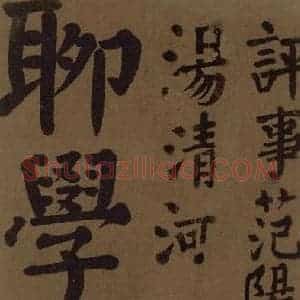 評事范陽
湯清河
聊學
shufaziliao.com